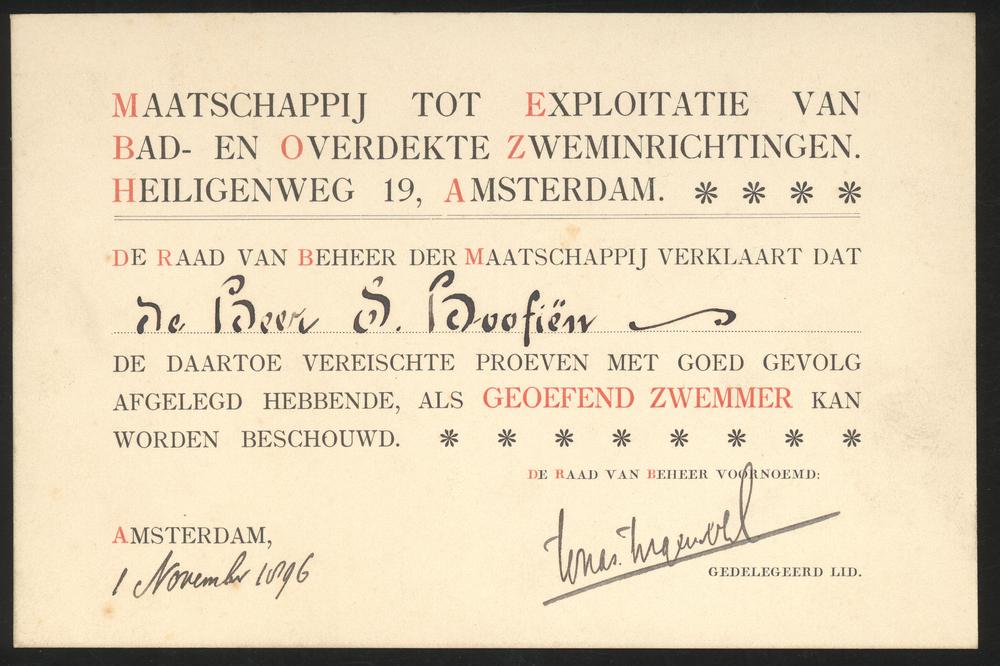 MAATSCHAPPIJ TOT EXPLOITATIE VAN
BAD- EN OVERDEKTE ZWEMINRICHTINGEN.
HEILIGENWEG 19, AMSTERDAM. * * * *
DE RAAD VAN BEHEER DER MAATSCHAPPIJ VERKLAART DAT
de Heer S. Hoofiën
DE DAARTOE VEREISCHTE PROEVEN MET GOED GEVOLG
AFGELEGD HEBBENDE, ALS GEOEFEND ZWEMMER KAN
WORDEN BESCHOUWD. * * * * * * * *
DE RAAD VAN BEHEER VOORNOEMD:
AMSTERDAM,
1 November 1896
GEDELEGEERD LID.